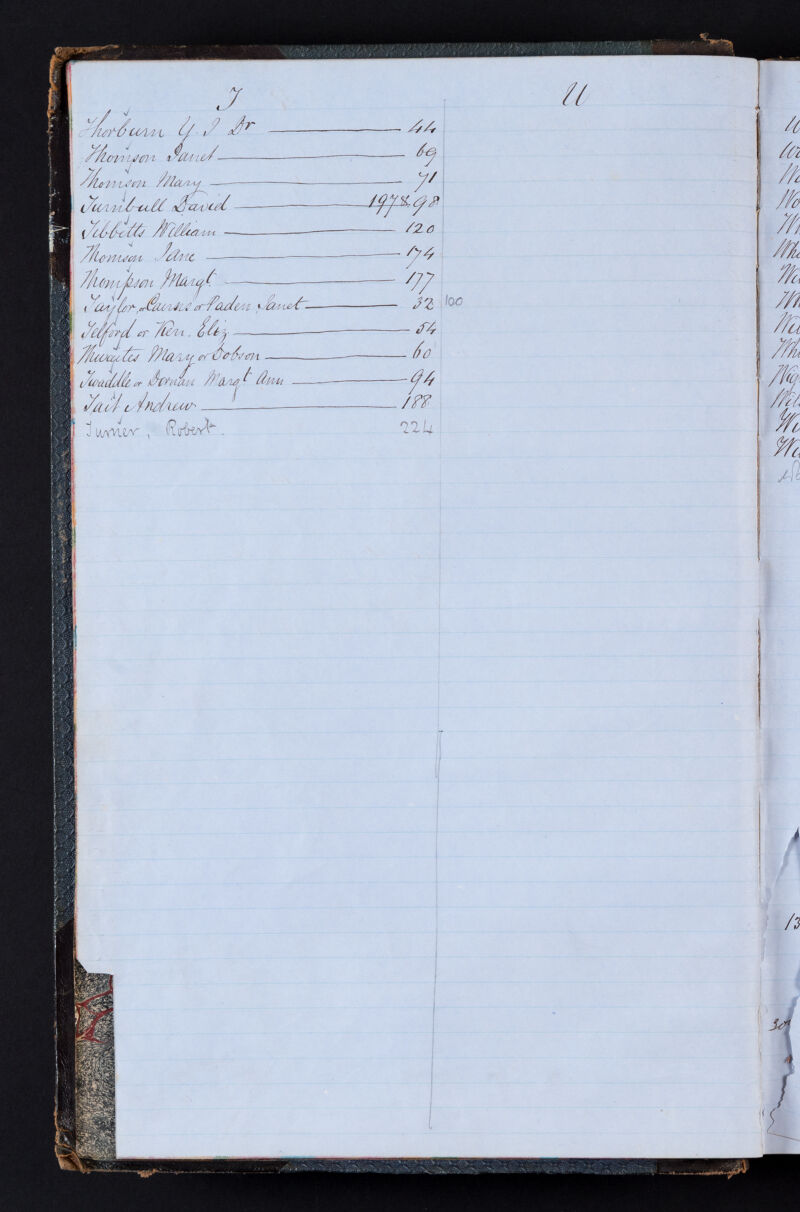 T
Thorburn Y. J Dr 44
Thomson Janet 69
Thomson Mary 71
Turnbull David 197 & 98
Tibbetts William 120
Thomson Jane 174
Thompson Margt 177
Taylor or Cairns or Paden Janet 32 100
Telford or Kerr. Eliz 54
Thwaites Mary or Dobson 60
Twaddle or Dornan Margt Ann 94
Tait Andrew 188
Turner, Robert. 224
U
13
30